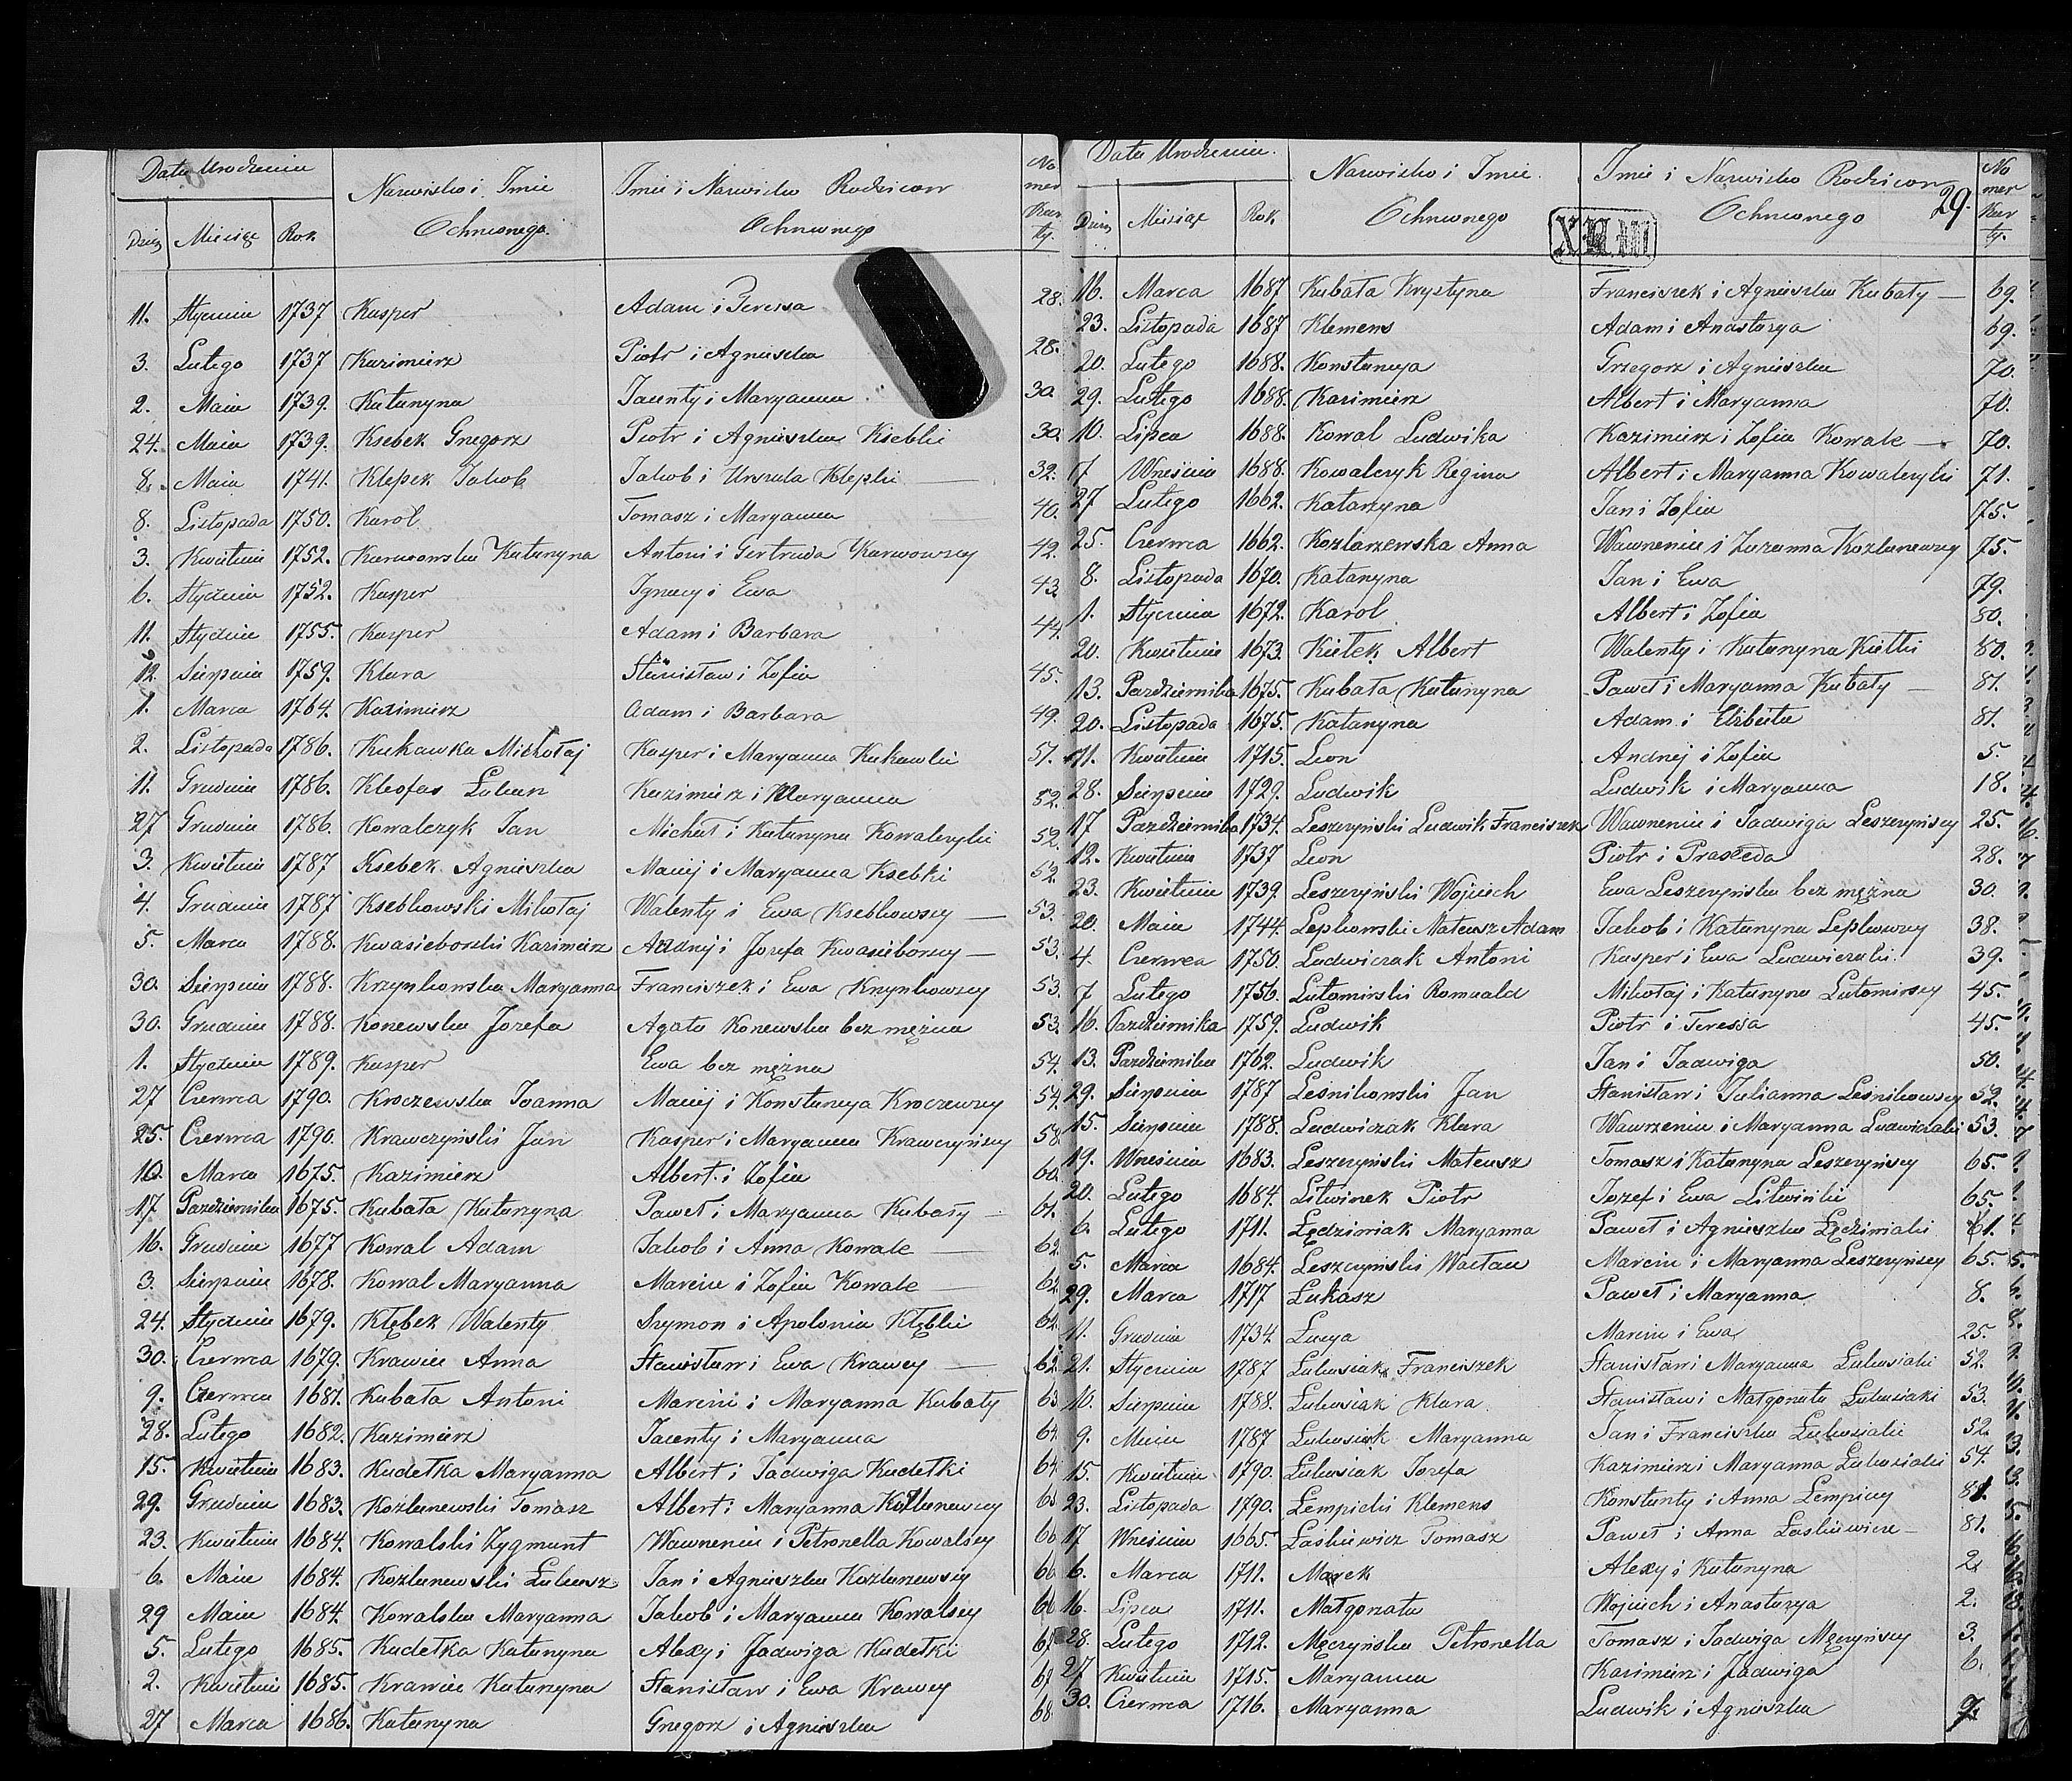 Data Urodzenia
Nazwisko i Imie Imie i Nazwisko Rodzicow No
mer
Dzień Miesiąc Rok Ochrzconego Ochrzconego Kar
ty.
11. Stycznia 1737 Kasper Adam i Teressa 28.
3. Lutego 1737 Kazimierz Piotr i Agnieszka 28.
2. Maia 1739. Katarzyna Jacenty i Maryanna 30
24. Maia 1739. Ksebek Grzegorz Piotr i Agnieszka Ksebki 30.
8. Maia 1741. Klepek Jakob Jakob i Urszula Klepki — 32.
8. Listopada 1750. Karol Tomasz i Maryanna 40.
3. Kwietnia 1752. Karwowska Katarzyna Antoni i Gertruda Karwowscy 42.
6. Stycznia 1752. Kasper Ignacy i Ewa 43.
11. Stycznia 1755. Kasper Adam i Barbara 44.
12. Sierpnia 1759. Klara Stanisław i Zofia 45.
1. Marca 1764. Kazimierz Adam i Barbara 49.
2. Listopada 1786. Kukawka Michołaj Kasper i Maryanna Kukawki 51.
11. Grudnia 1786. Kleofas Łukasz Kazimierz i Maryanna 52.
27 Grudnia 1786. Kowalczyk Jan Michał i Katarzyna Kowalczyki 52.
3. Kwietnia 1787 Ksebek Agnieszka Maciej i Maryanna Ksebki 52.
4. Grudnia 1787 Ksebkowski Mikołaj Walenty i Ewa Ksebkowscy — 53.
5. Marca 1788. Kwasieborski Kazimierz Andrzej i Jozefa Kwasieborscy — 53.
30. Sierpnia 1788. Krzynkowska Maryanna Franciszek i Ewa Krzynkowscy 53.
30. Grudnia 1788. Konewska Jozefa Agata Konewska bez mężna 53.
1. Stycznia 1789. Kasper Ewa bez mężna 54.
27 Czerwca 1790. Kroczewska Joanna Maciej i Konstancya Kroczewscy 54.
25. Czerwca 1790. Krawczyński Jan Kasper i Maryanna Krawczyńscy 58.
10. Marca 1675. Kazimierz Albert i Zofia 60.
17 Pazdziernika 1675. Kubała Katarzyna Paweł i Maryanna Kubały — 61.
16. Grudnia 1677 Kowal Adam Jakob i Anna Kowale — 62.
3. Sierpnia 1678. Kowal Maryanna Marcin i Zofia Kowale — 62.
24. Stycznia 1679. Kłębek Walenty Szymon i Apolonia Kłębki 62.
30. Czerwca 1679. Krawiec Anna Stanisław i Ewa Krawcy — 62.
9. Czerwca 1681. Kubała Antoni Marcin i Maryanna Kubały 63
28. Lutego 1682. Kazimierz Jacenty i Maryanna 64
15. Kwietnia 1683. Kudełka Maryanna Albert i Jadwiga Kudełki 64
29. Grudnia 1683. Kozłarzewski Tomasz Albert i Maryanna Kozłarzewscy 65
23. Kwietnia 1684. Kowalski Zygmunt Wawrzeniec i Petronella Kowalscy 66
6. Maia 1684. Kozłarzewski Łukasz Jan i Agnieszka Kozłarzewscy 66
29 Maia 1684. Kowalska Maryanna Jakob i Maryanna Kowalscy 66
5. Lutego 1685. Kudełka Katarzyna Alexy i Jadwiga Kudełki
2. Kwietnia 1685. Krawiec Katarzyna Stanisław i Ewa Krawcy
27 Marca 1686. Katarzyna Grzegorz i Agnieszka 68
Data Urodzenia.
Nazwisko i Imie. Imie i Nazwisko Rodzicow No
mer
Dzień Miesiąc Rok Ochrzconego Ochrzconego 29. Kar
ty.
16. Marca 1687 Kubała Krystyna Franciszek i Agnieszka Kubały — 69.
23. Listopada 1687 Klemens Adam i Anastazya 69.
20. Lutego 1688. Konstancya Grzegorz i Agnieszka 70.
29. Lutego 1688. Kazimierz Albert i Maryanna 70.
10. Lipca 1688. Kowal Ludwika Kazimierz i Zofia Kowale — 70.
7 Września 1688. Kowalczyk Regina Albert i Maryanna Kowalczyki 71.
27 Lutego 1662. Katarzyna Jan i Zofia 75.
25. Czerwca 1662. Kozlarzewska Anna Wawrzeniec i Zuzanna Kozlarzewscy 75.
8. Listopada 1670. Katarzyna Jan i Ewa 79.
1. Stycznia 1672. Karol Albert i Zofia 80.
20. Kwietnia 1673. Kiełek Albert Walenty i Katarzyna Kiełki 80.
13. Pazdziernika 1675. Kubała Katarzyna Paweł i Maryanna Kubały — 81.
20. Listopada 1675. Katarzyna Adam i Elżbieta 81.
11. Kwietnia 1715. Leon Andrzej i Zofia 5.
28. Sierpnia 1729. Ludwik Ludwik i Maryanna 18.
17 Pazdziernika 1734. Leszczyński Ludwik Franciszek Wawrzeniec i Jadwiga Leszczyńscy 25.
12. Kwietnia 1737 Leon Piotr i Praxeda 28.
23. Kwietnia 1739. Leszczyński Wojciech Ewa Leszczyńska bez mężna 30.
20. Maia 1744. Lepkowski Mateusz Adam Jakob i Katarzyna Lepkowscy 38.
4. Czerwca 1750. Ludwiczak Antoni Kasper i Ewa Ludwiczaki. 39.
7 Lutego 1756. Lutomirski Romuald Mikołaj i Katarzyna Lutomirscy 45.
16. Pazdziernika 1759. Ludwik Piotr i Teressa 45.
13. Pazdziernika 1762. Ludwik Jan i Jadwiga 50.
29. Sierpnia 1787 Leśnikowski Jan Stanisław i Julianna Leśnikowscy 52.
15. Sierpnia 1788. Ludwiczak Klara Wawrzeniec i Maryanna Ludwiczaki 53.
19. Września 1683. Leszczyński Mateusz Tomasz i Katarzyna Leszczyńscy 65.
20. Lutego 1684. Litwinek Piotr Jozef i Ewa Litwinki 65.
6. Lutego 1711. Łędzioniak Maryanna Paweł i Agnieszka Łędzioniaki 61.
5. Marca 1684. Leszczyński Wacław Marcin i Maryanna Leszczyńscy 65.
29. Marca 1717 Łukasz Paweł i Maryanna 8.
11. Grudnia 1734. Łucya Marcin i Ewa 25.
21. Stycznia 1787 Łukasiak Franciszek Stanisław i Maryanna Łukasiaki 52.
10. Sierpnia 1788. Łukasiak Klara Stanisław i Małgorzata Łukasiaki 53.
9. Maia 1787 Łukasiak Maryanna Jan i Franciszka Łukasiaki 52.
15. Kwietnia 1790. Łukasiak Jozefa Kazimierz i Maryanna Łukasiaki 54.
23. Listopada 1790. Łempicki Klemens Konstanty i Anna Łempiccy
17 Września 1665. Łaskiewicz Tomasz Paweł i Anna Łaskiewicze — 81.
6. Marca 1711. Marek Alexy i Katarzyna 2.
16. Lipca 1711. Małgorzata Wojciech i Anastazya 2.
28. Lutego 1712. Męczyńska Petronella Tomasz i Jadwiga Męczyńscy 3.
27 Kwietnia 1715. Maryanna Kazimierz i Jadwiga 6.
30. Czerwca 1716. Maryanna Ludwik i Agnieszka 7.